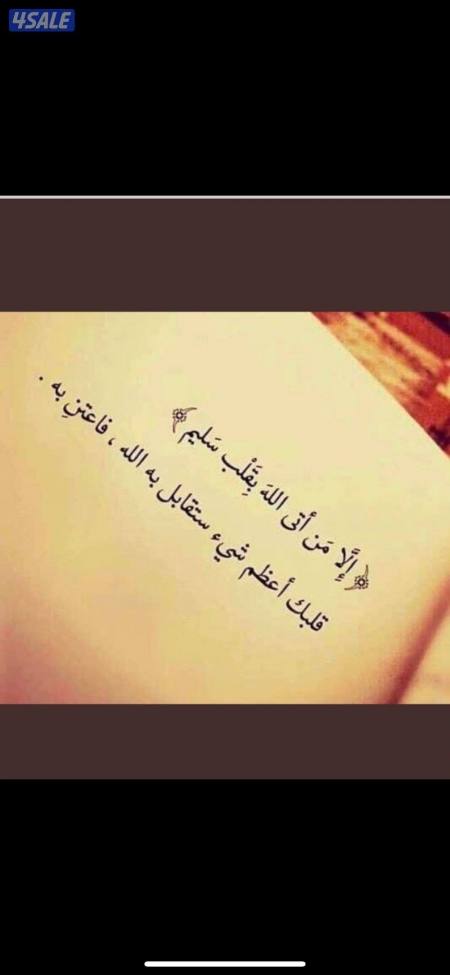 4SALE
﴿إِلَّا مَن أتى اللهَ بِقَلْب سَليم﴾
قلبك أعظم شيء ستقابل به الله ، فاعتنِ به .